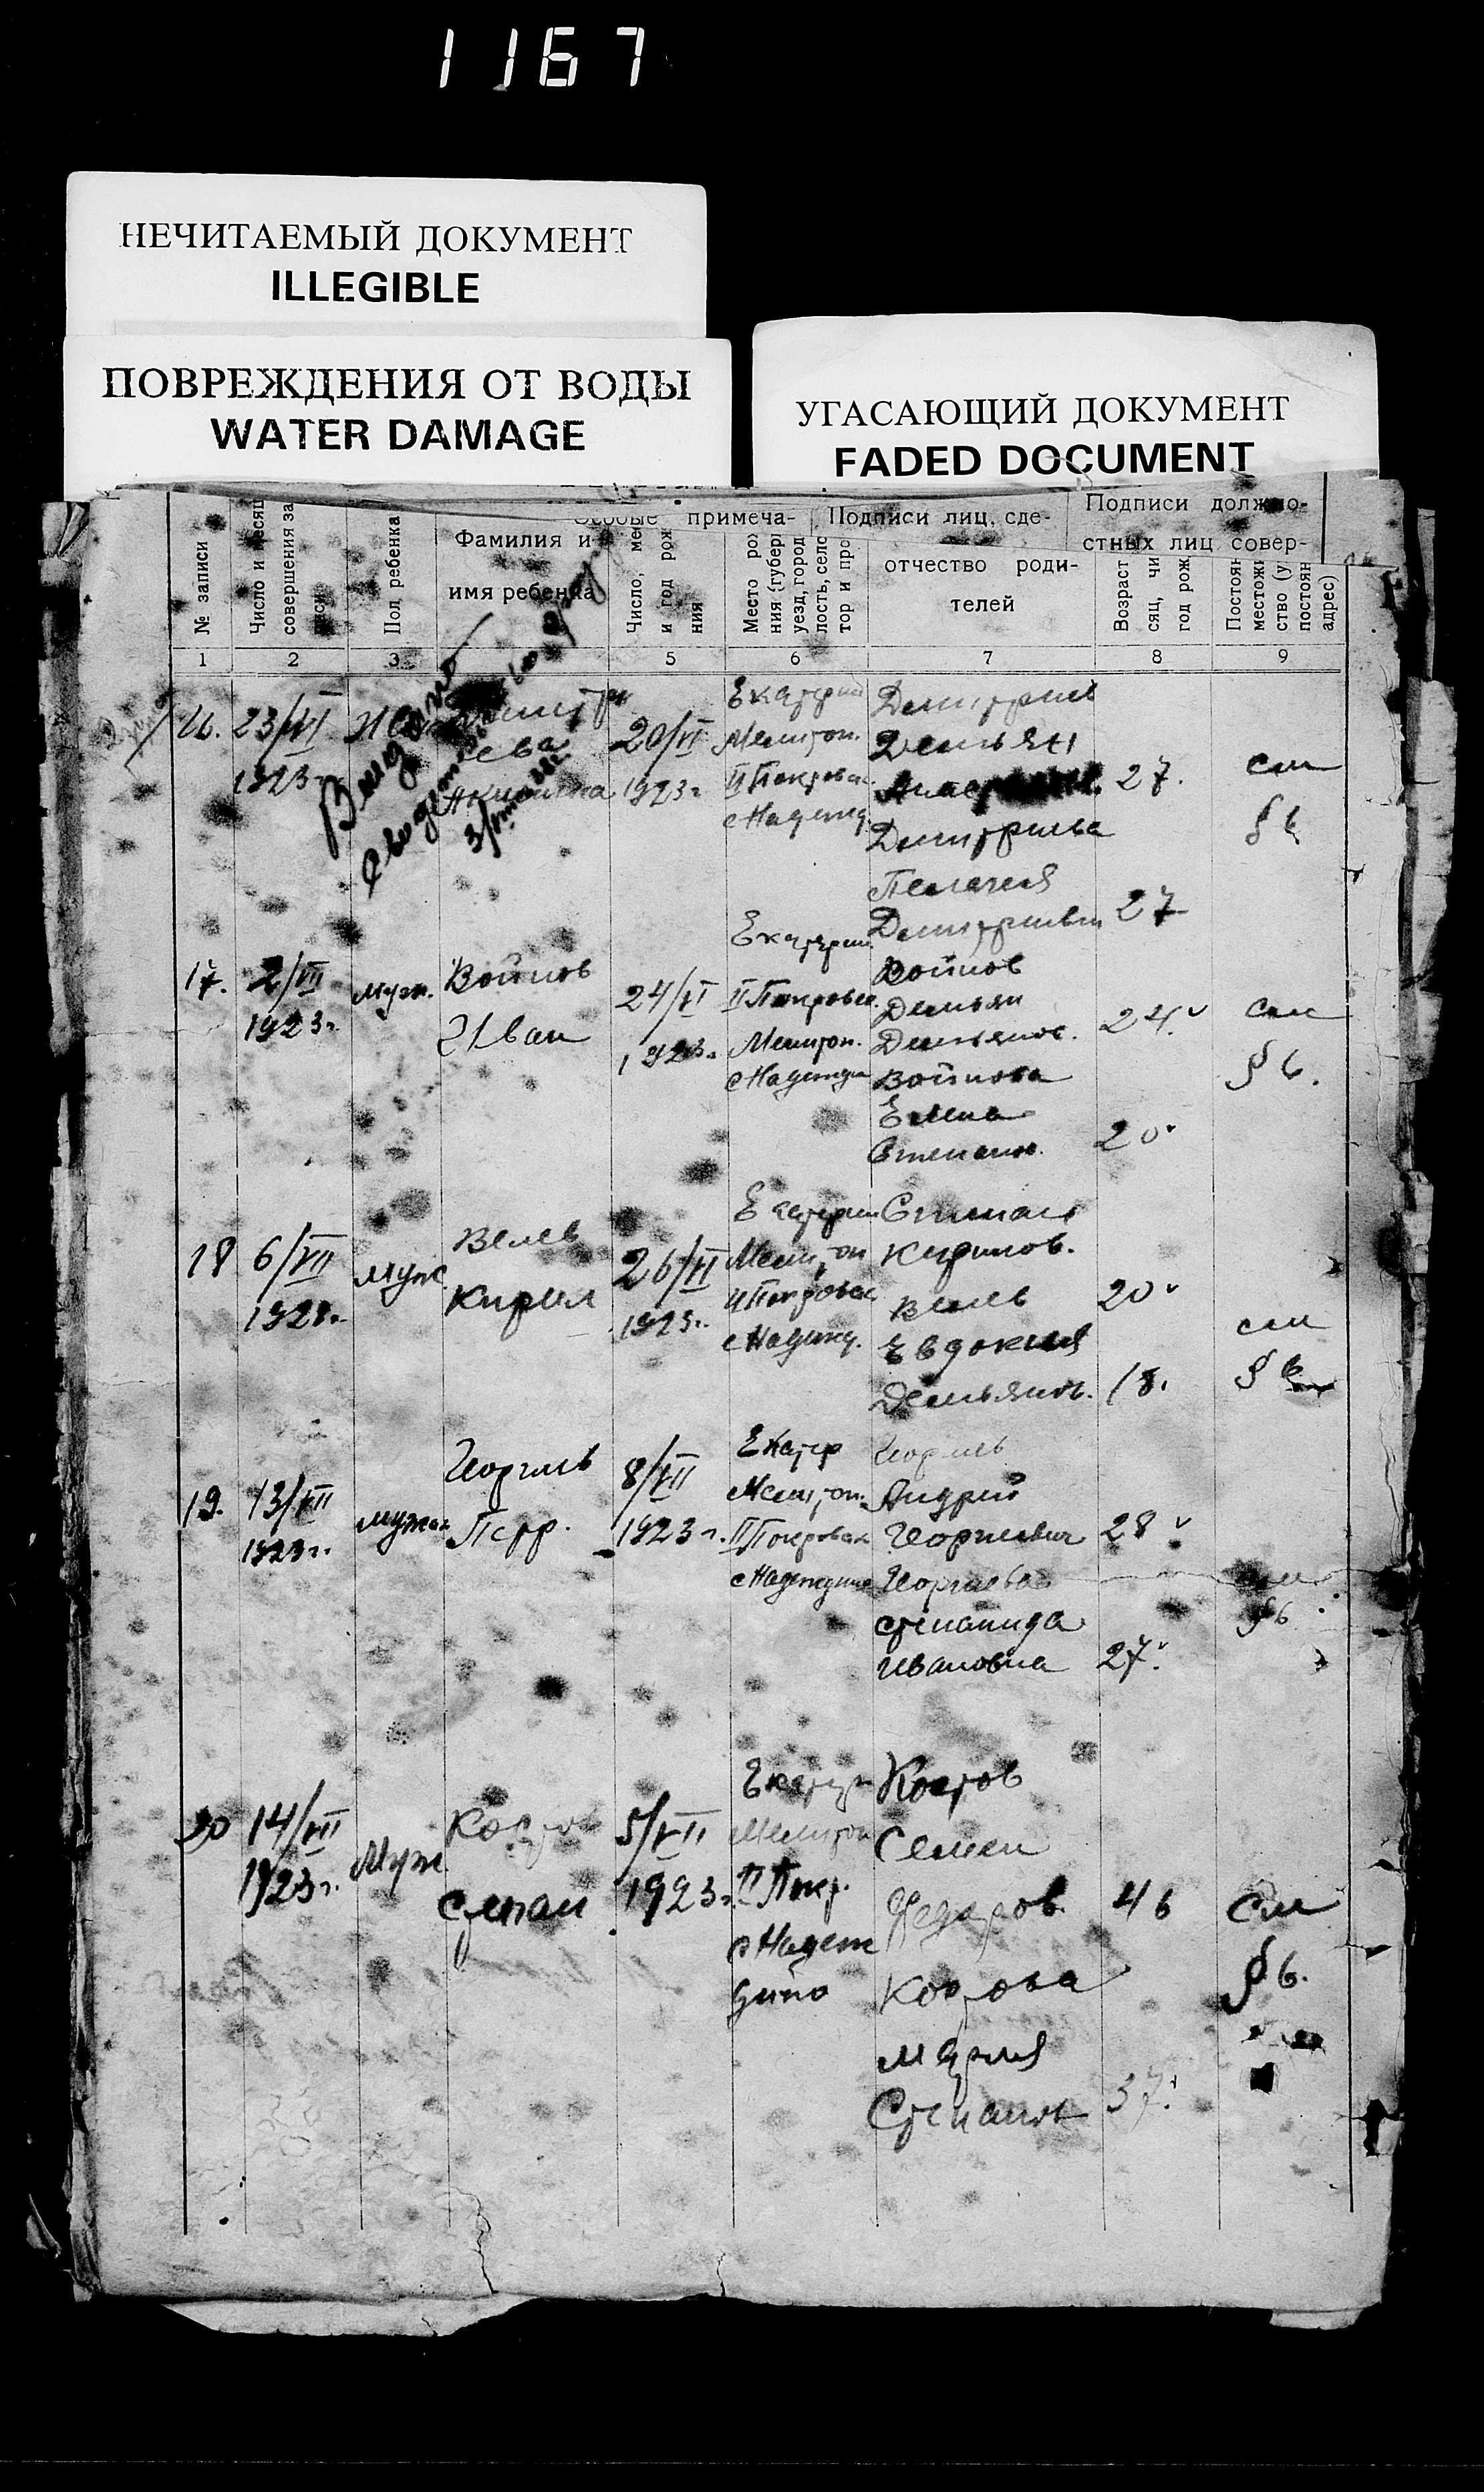 1167
НЕЧИТАЕМЫЙ ДОКУМЕНТ
ILLEGIBLE
ПОВРЕЖДЕНИЯ ОТ ВОДЫ
WATER DAMAGE
УГАСАЮЩИЙ ДОКУМЕНТ
FADED DOCUMENT
Особые примеча-
Подписи лиц, сде-
Подписи должно-
стных лиц совер-
№ записи
Число и месяц
совершения за
писи
Пол ребенка
Фамилия и
имя ребенка
Число, мес
и год рож
ния
Место рож
ния (губер
уезд, город
лость, село
тор и про
отчество роди-
телей
Возраст
сяц, чи
год рож
Постоян
местожи
ство (у
постоян
адрес)
1 2 3 5 6 7 8 9
23/VI
1923г
Выдано
20/VI
1923г
Екатерин
Мелитоп.
II Покровск
с Надежд.
Демьян
27.
см
§ 6
Пелагея
27
17.
2/VII
1923г.
муж.
Войнов
Иван
24/VI
1923г.
Екатерин
II Покровск.
Мелитоп.
с Надежди
Войнов
Демьян
Демьянов.
Войнова
Елена
Степанов.
24.
20.
см
§ 6.
18
6/VII
1923г.
муж
Велев
Кирил
26/VI
1923г.
Екатерин
Мелитоп
II Покровск
с Надежд.
Степан
Кирилов.
Велев
Евдокия
Демьянов.
20
18.
см
§ 6
19.
13/VII
1923г.
мужск
Георгиев
Петр.
8/VII
1923г.
Екатер
Мелитоп.
II Покровск
с Надеждине
Георгиев
Андрей
Георгиевич
Георгиева
Степанида
Ивановна
28
27.
см
§ 6
20
14/VII
1923г.
Муж
Костов
Степан
5/VII
1923г.
Екатер
Мелитоп
II Покр.
с Надеж
дино
Костов
Семен
Федоров.
Костова
Мария
Степанов
46
37.
см
§ 6.